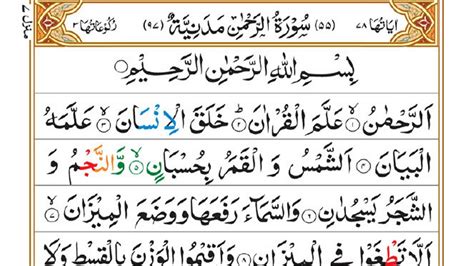 اٰیَاتُهَا ٧٨ (٥٥) سُوْرَةُ الرَّحْمٰنِ مَدَنِيَّةٌ (٩٧) رُكُوْعَاتُهَا ٣
منزل ٧
بِسْمِ اللّٰهِ الرَّحْمٰنِ الرَّحِيْمِ
اَلرَّحْمٰنُ ۙ١ عَلَّمَ الْقُرْاٰنَ ؕ٢ خَلَقَ الْاِنْسَانَ ۙ٣ عَلَّمَهُ
الْبَيَانَ ٤ اَلشَّمْسُ وَ الْقَمَرُ بِحُسْبَانٍ ۪٥ وَّالنَّجْمُ وَ
الشَّجَرُ يَسْجُدٰنِ ٦ وَالسَّمَآءَ رَفَعَهَا وَوَضَعَ الْمِيْزَانَ ۙ٧
اَلَّا تَطْغَوْا فِي الْمِيْزَانِ ٨ وَاَقِيْمُوا الْوَزْنَ بِالْقِسْطِ وَلَا